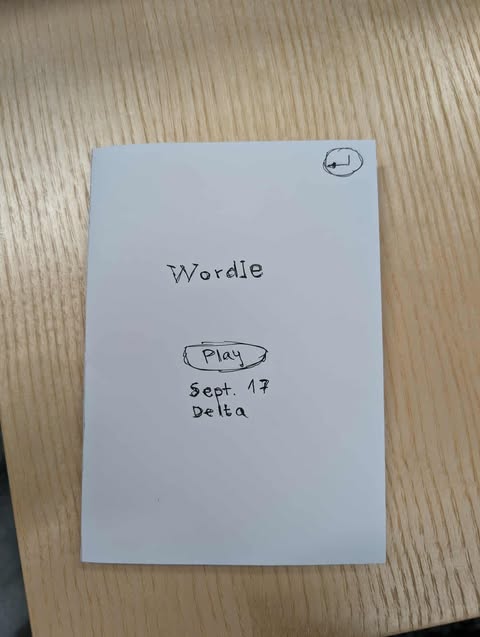 Wordle
Play
Sept. 17
Delta